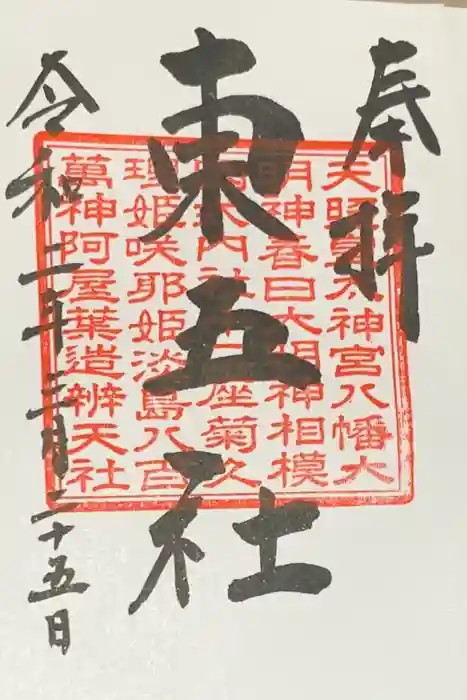 奉拝
東五社
令和二年三月二十五日
天照皇大神宮八幡大
明神春日大明神相模
社 座菊久
理姫咲耶姫淡島八百
萬神阿屋葉造辨天社